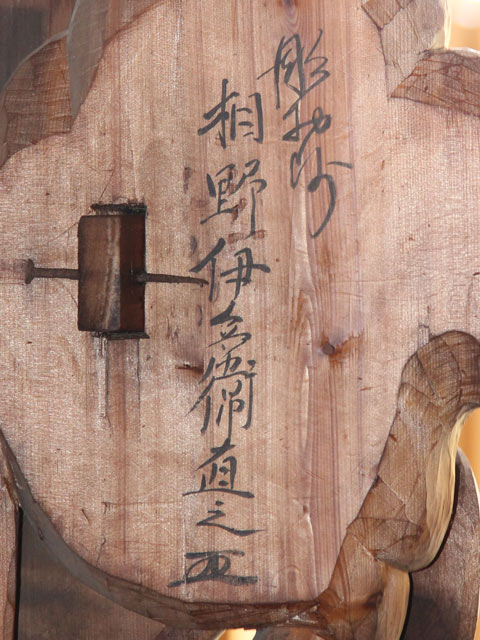 彫物師
相野伊兵衛直之